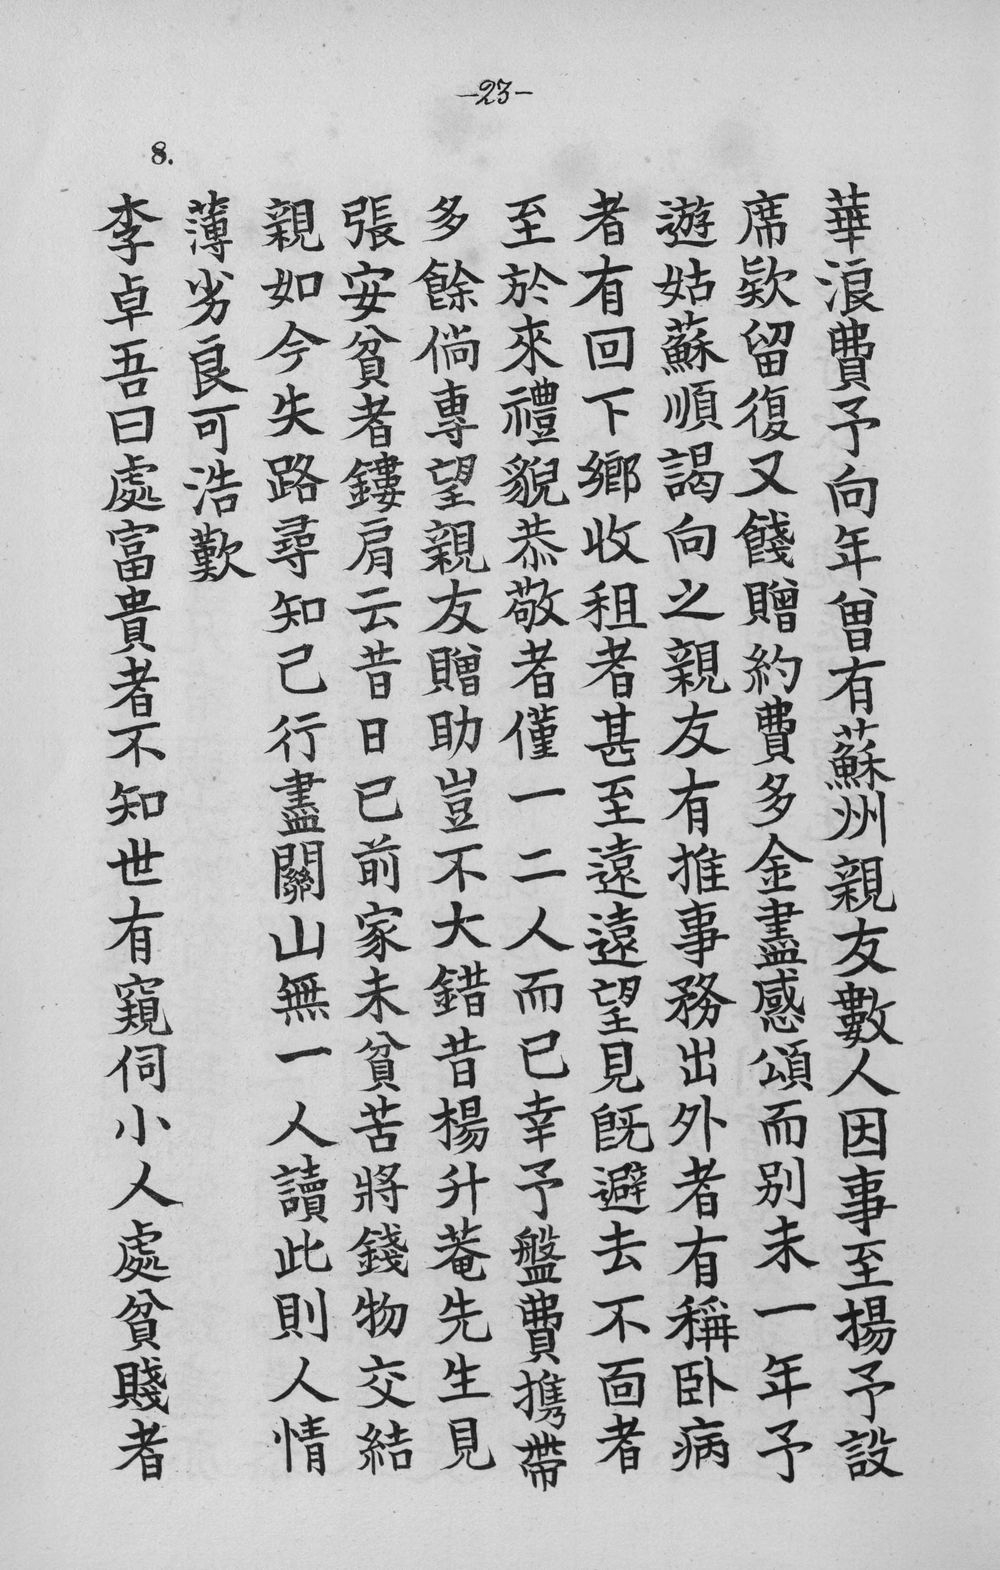 -23-
華浪費予向年曾有蘇州親友數人因事至揚予設
席欵留復又餞贈約費多金盡感頌而别未一年予
遊姑蘇順謁向之親友有推事務出外者有稱卧病
者有回下鄉收租者甚至遠遠望見既避去不面者
至於來禮貌恭敬者僅一二人而已幸予盤費携帶
多餘倘專望親友贈助豈不大錯昔楊升菴先生見
張安貧者鏤肩云昔日已前家未貧苦將錢物交結
親如今失路尋知己行盡關山無一人讀此則人情
薄劣良可浩歎
8.
李卓吾曰處富貴者不知世有窺伺小人處貧賤者